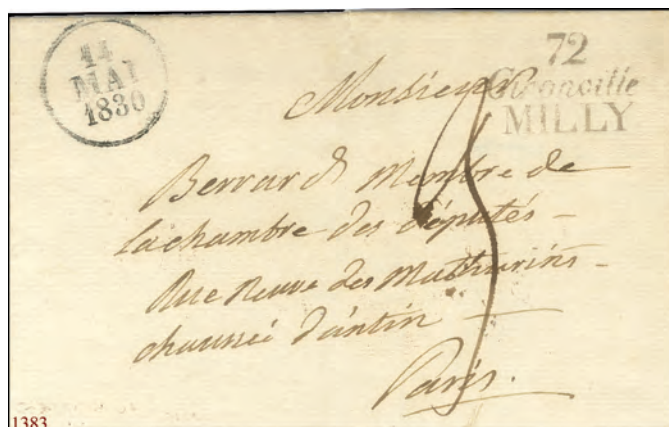 14
MAI
1830
72
Gironville
MILLY
Monsieur
Berrard Membre de
la chambre des députés -
Rue neuve des Mathurins -
chaussée d'antin
Paris.
1383